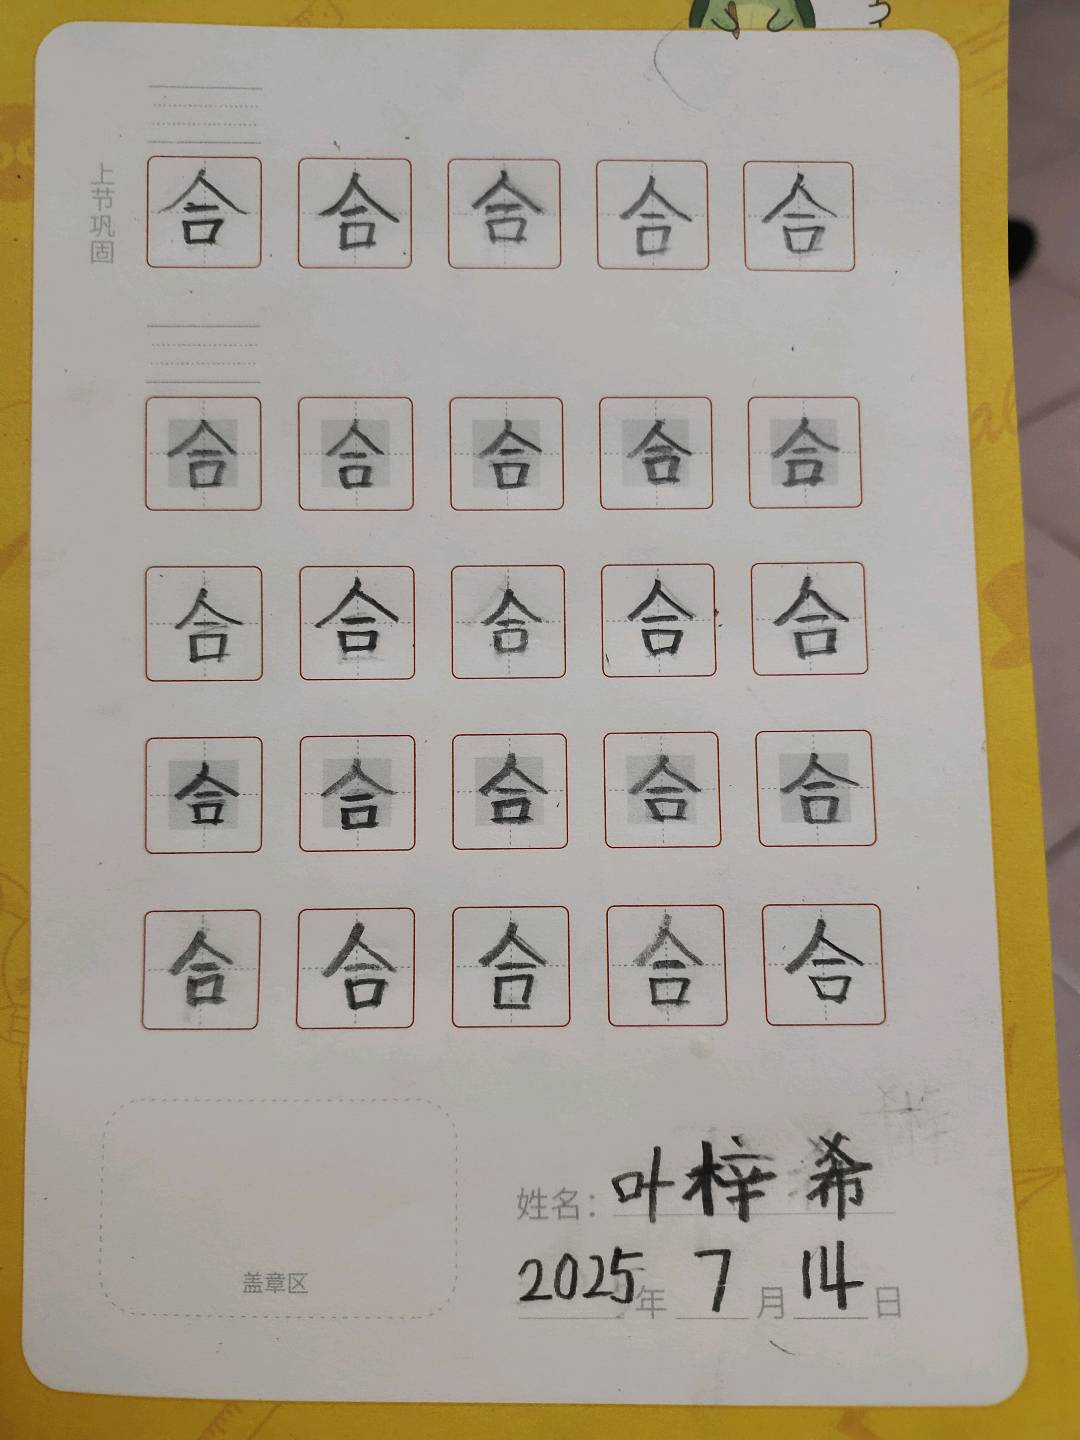 上节巩固
合 合 合 合 合
合 合 合 合 合
合 合 合 合 合
合 合 合 合 合
合 合 合 合 合
姓名：叶梓希
盖章区
2025年7月14日